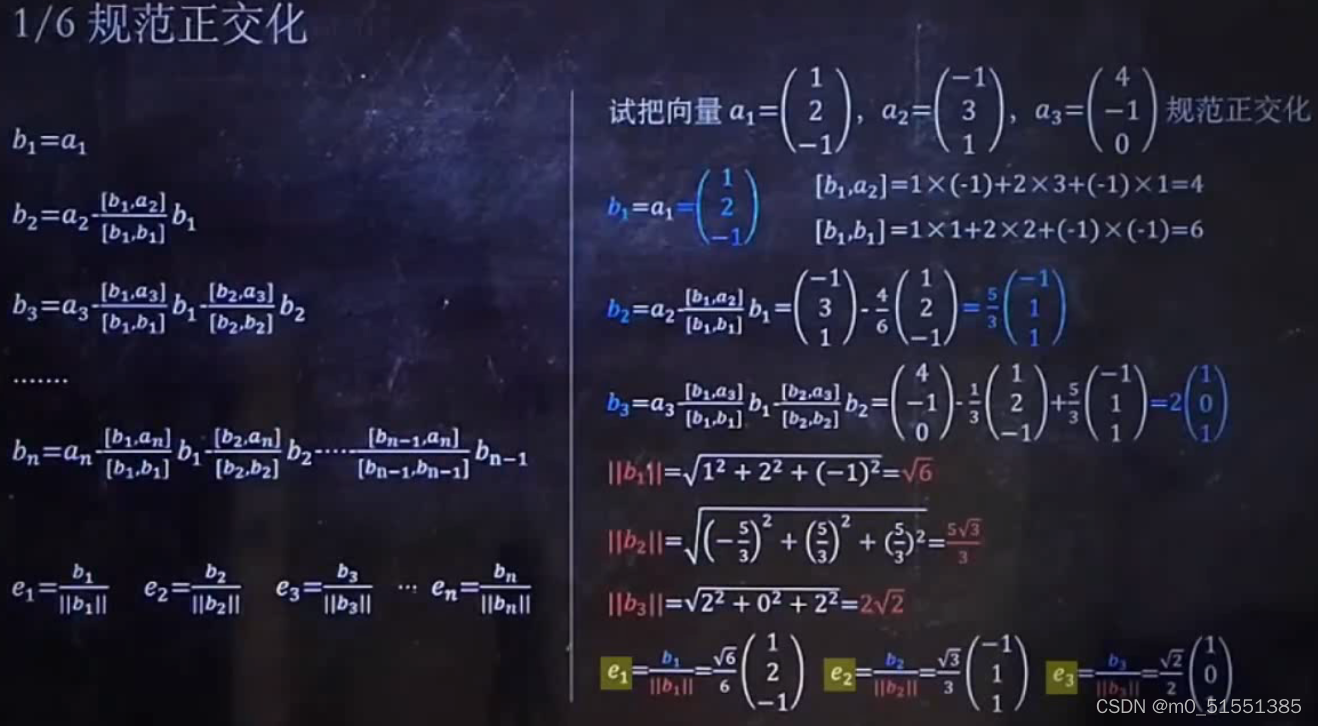 1/6 规范正交化
b₁=a₁
b₂=a₂-[b₁,a₂]/[b₁,b₁] b₁
b₃=a₃-[b₁,a₃]/[b₁,b₁] b₁-[b₂,a₃]/[b₂,b₂] b₂
.......
bₙ=aₙ-[b₁,aₙ]/[b₁,b₁] b₁-[b₂,aₙ]/[b₂,b₂] b₂-····-[bₙ₋₁,aₙ]/[bₙ₋₁,bₙ₋₁] bₙ₋₁
e₁=b₁/||b₁|| e₂=b₂/||b₂|| e₃=b₃/||b₃|| ··· eₙ=bₙ/||bₙ||
试把向量 a₁=(1 2 −1), a₂=(−1 3 1), a₃=(4 −1 0) 规范正交化
b₁=a₁=(1 2 −1) [b₁,a₂]=1×(-1)+2×3+(-1)×1=4
[b₁,b₁]=1×1+2×2+(-1)×(-1)=6
b₂=a₂-[b₁,a₂]/[b₁,b₁] b₁=(−1 3 1)-4/6(1 2 −1)=5/3(−1 1 1)
b₃=a₃-[b₁,a₃]/[b₁,b₁] b₁-[b₂,a₃]/[b₂,b₂] b₂=(4 −1 0)-1/3(1 2 −1)+5/3(−1 1 1)=2(1 0 1)
||b₁||=√(1² + 2² + (−1)²)=√6
||b₂||=√((−5/3)² + (5/3)² + (5/3)²)=5√3/3
||b₃||=√(2² + 0² + 2²)=2√2
e₁=b₁/||b₁||=√6/6(1 2 −1) e₂=b₂/||b₂||=√3/3(−1 1 1) e₃=b₃/||b₃||=√2/2(1 0 1)
CSDN @m0_51551385